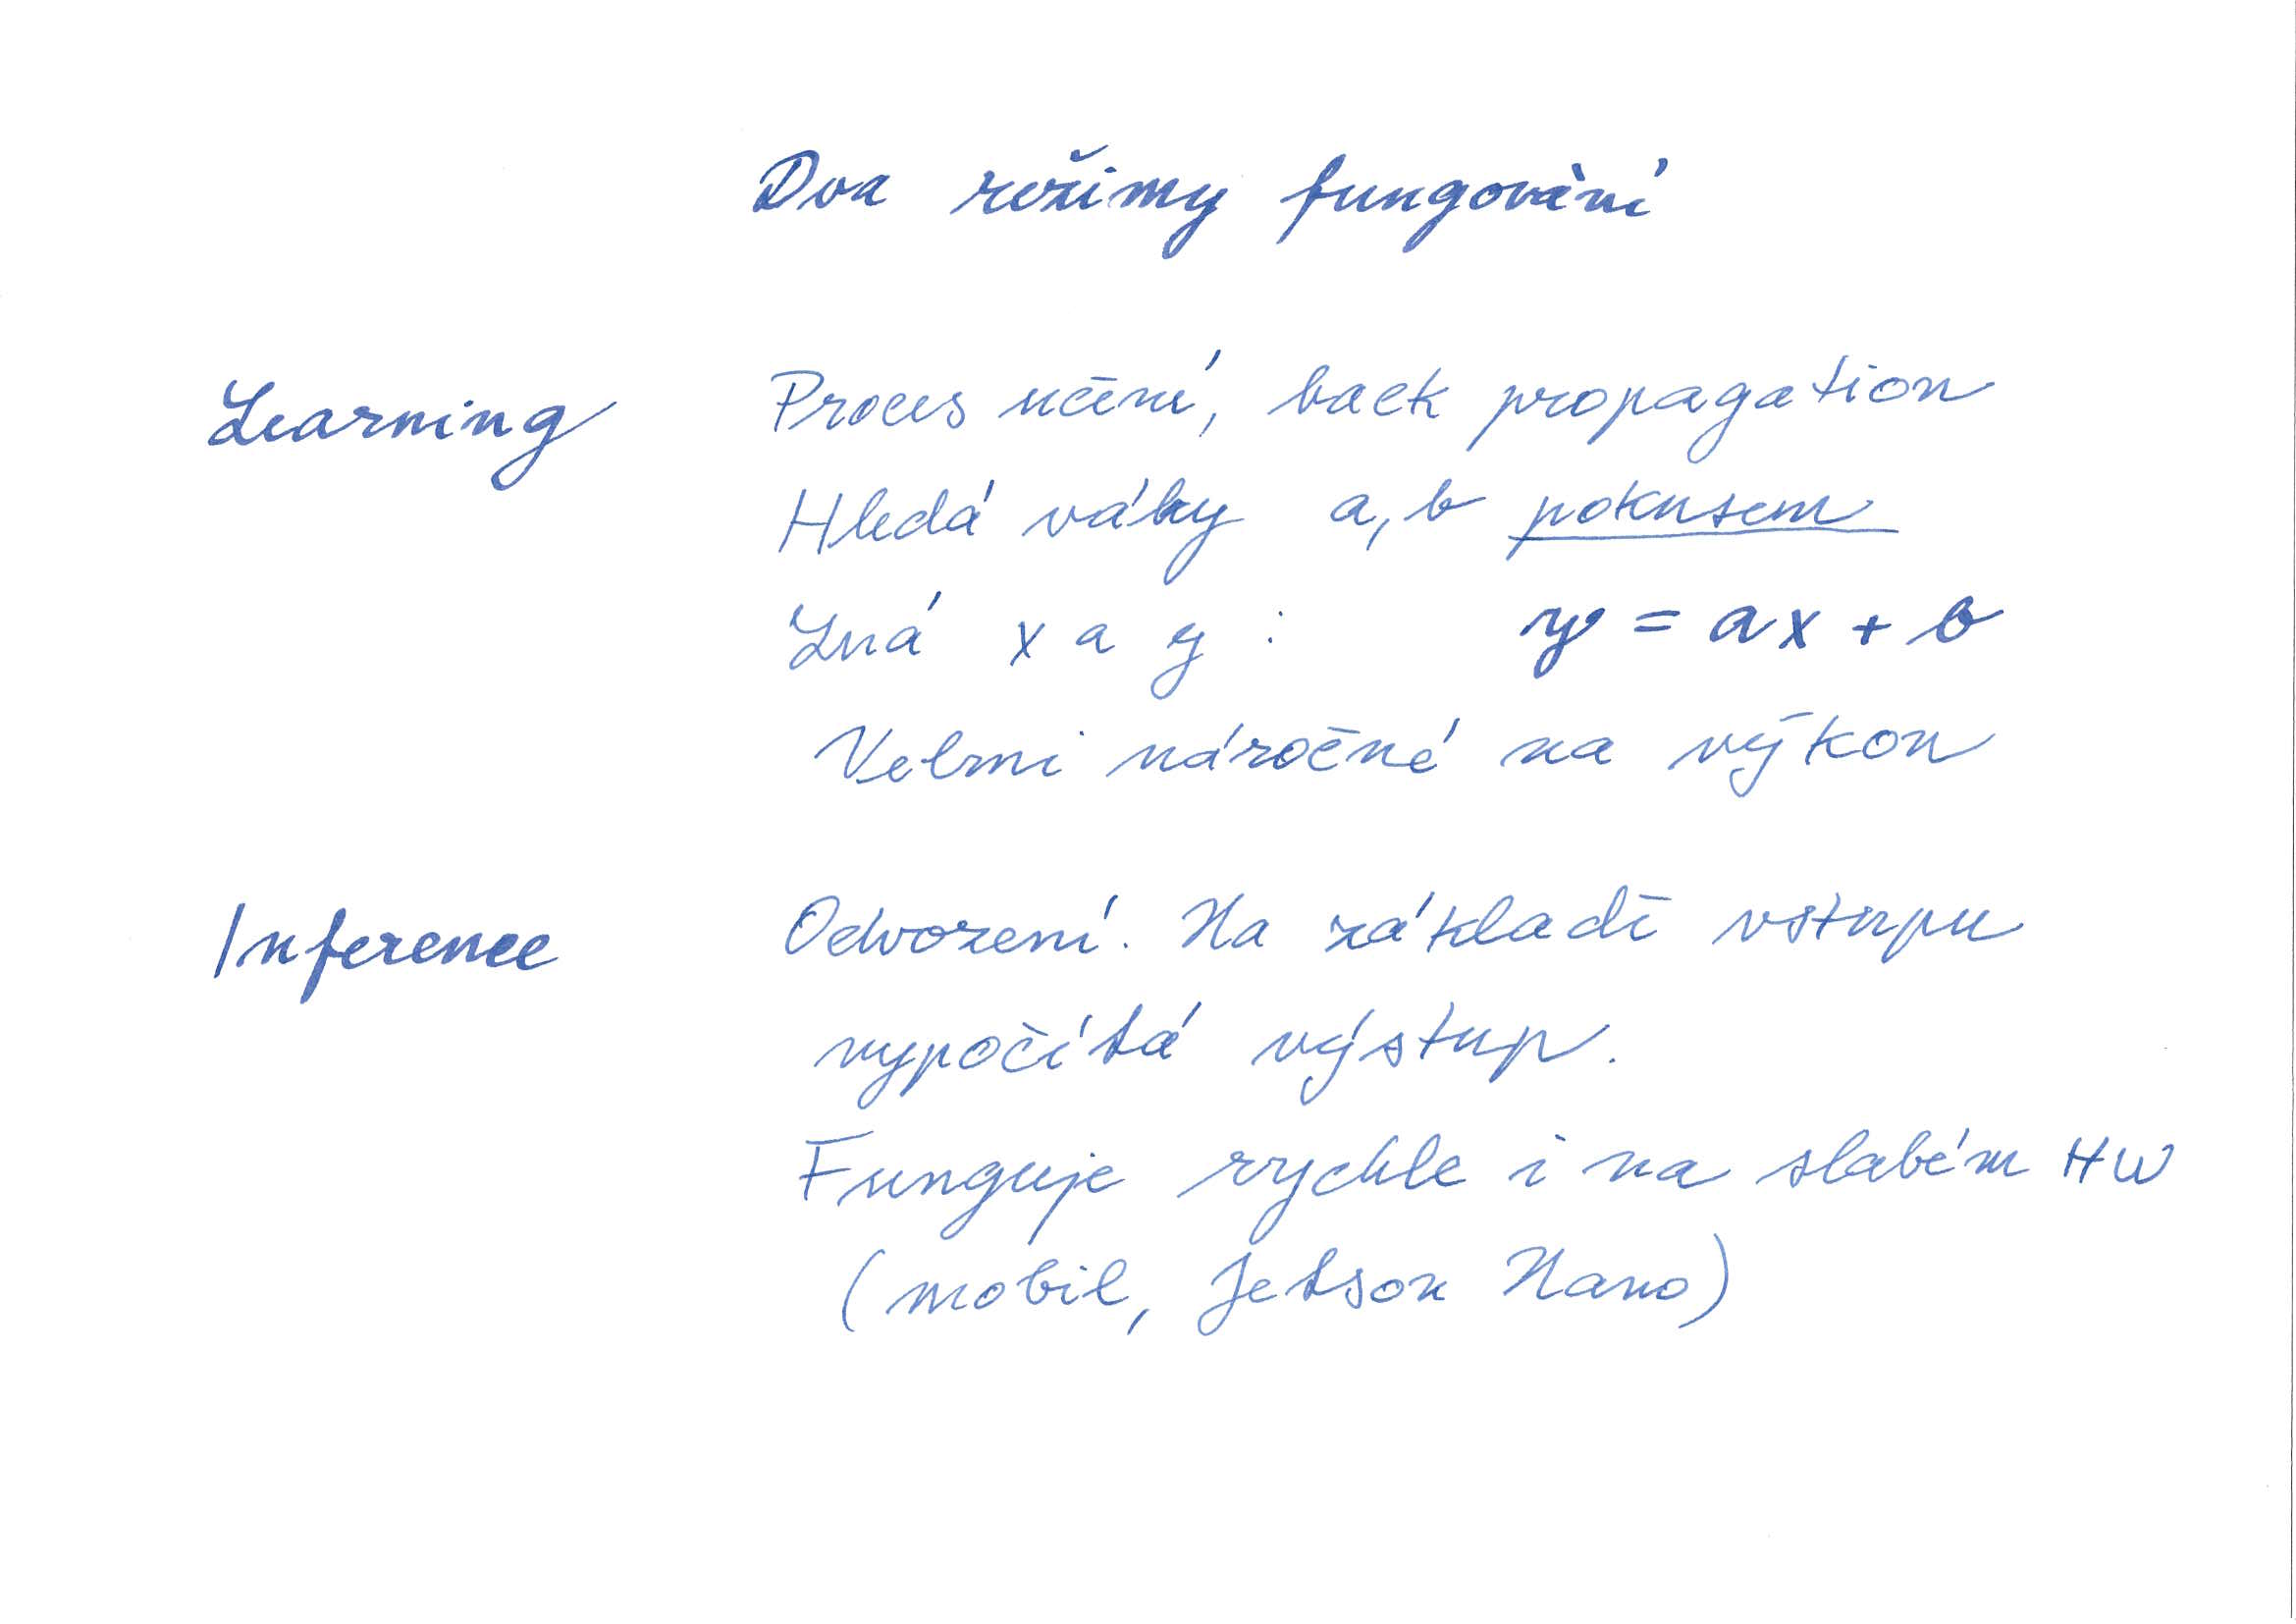 Dva režimy fungování
Learning Proces učení, back propagation
Hledá váhy a, b pokusem
Zná x a y : y = ax + b
Velmi náročné na výkon
Inference Odvození. Na základě vstupu
vypočítá výstup.
Funguje rychle i na slabém HW
(mobil, Jetson Nano)